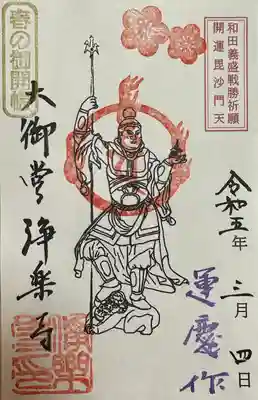 和田義盛戦勝祈願
開運毘沙門天
令和五年三月四日
運慶作
春の御開帳
大御堂浄楽寺